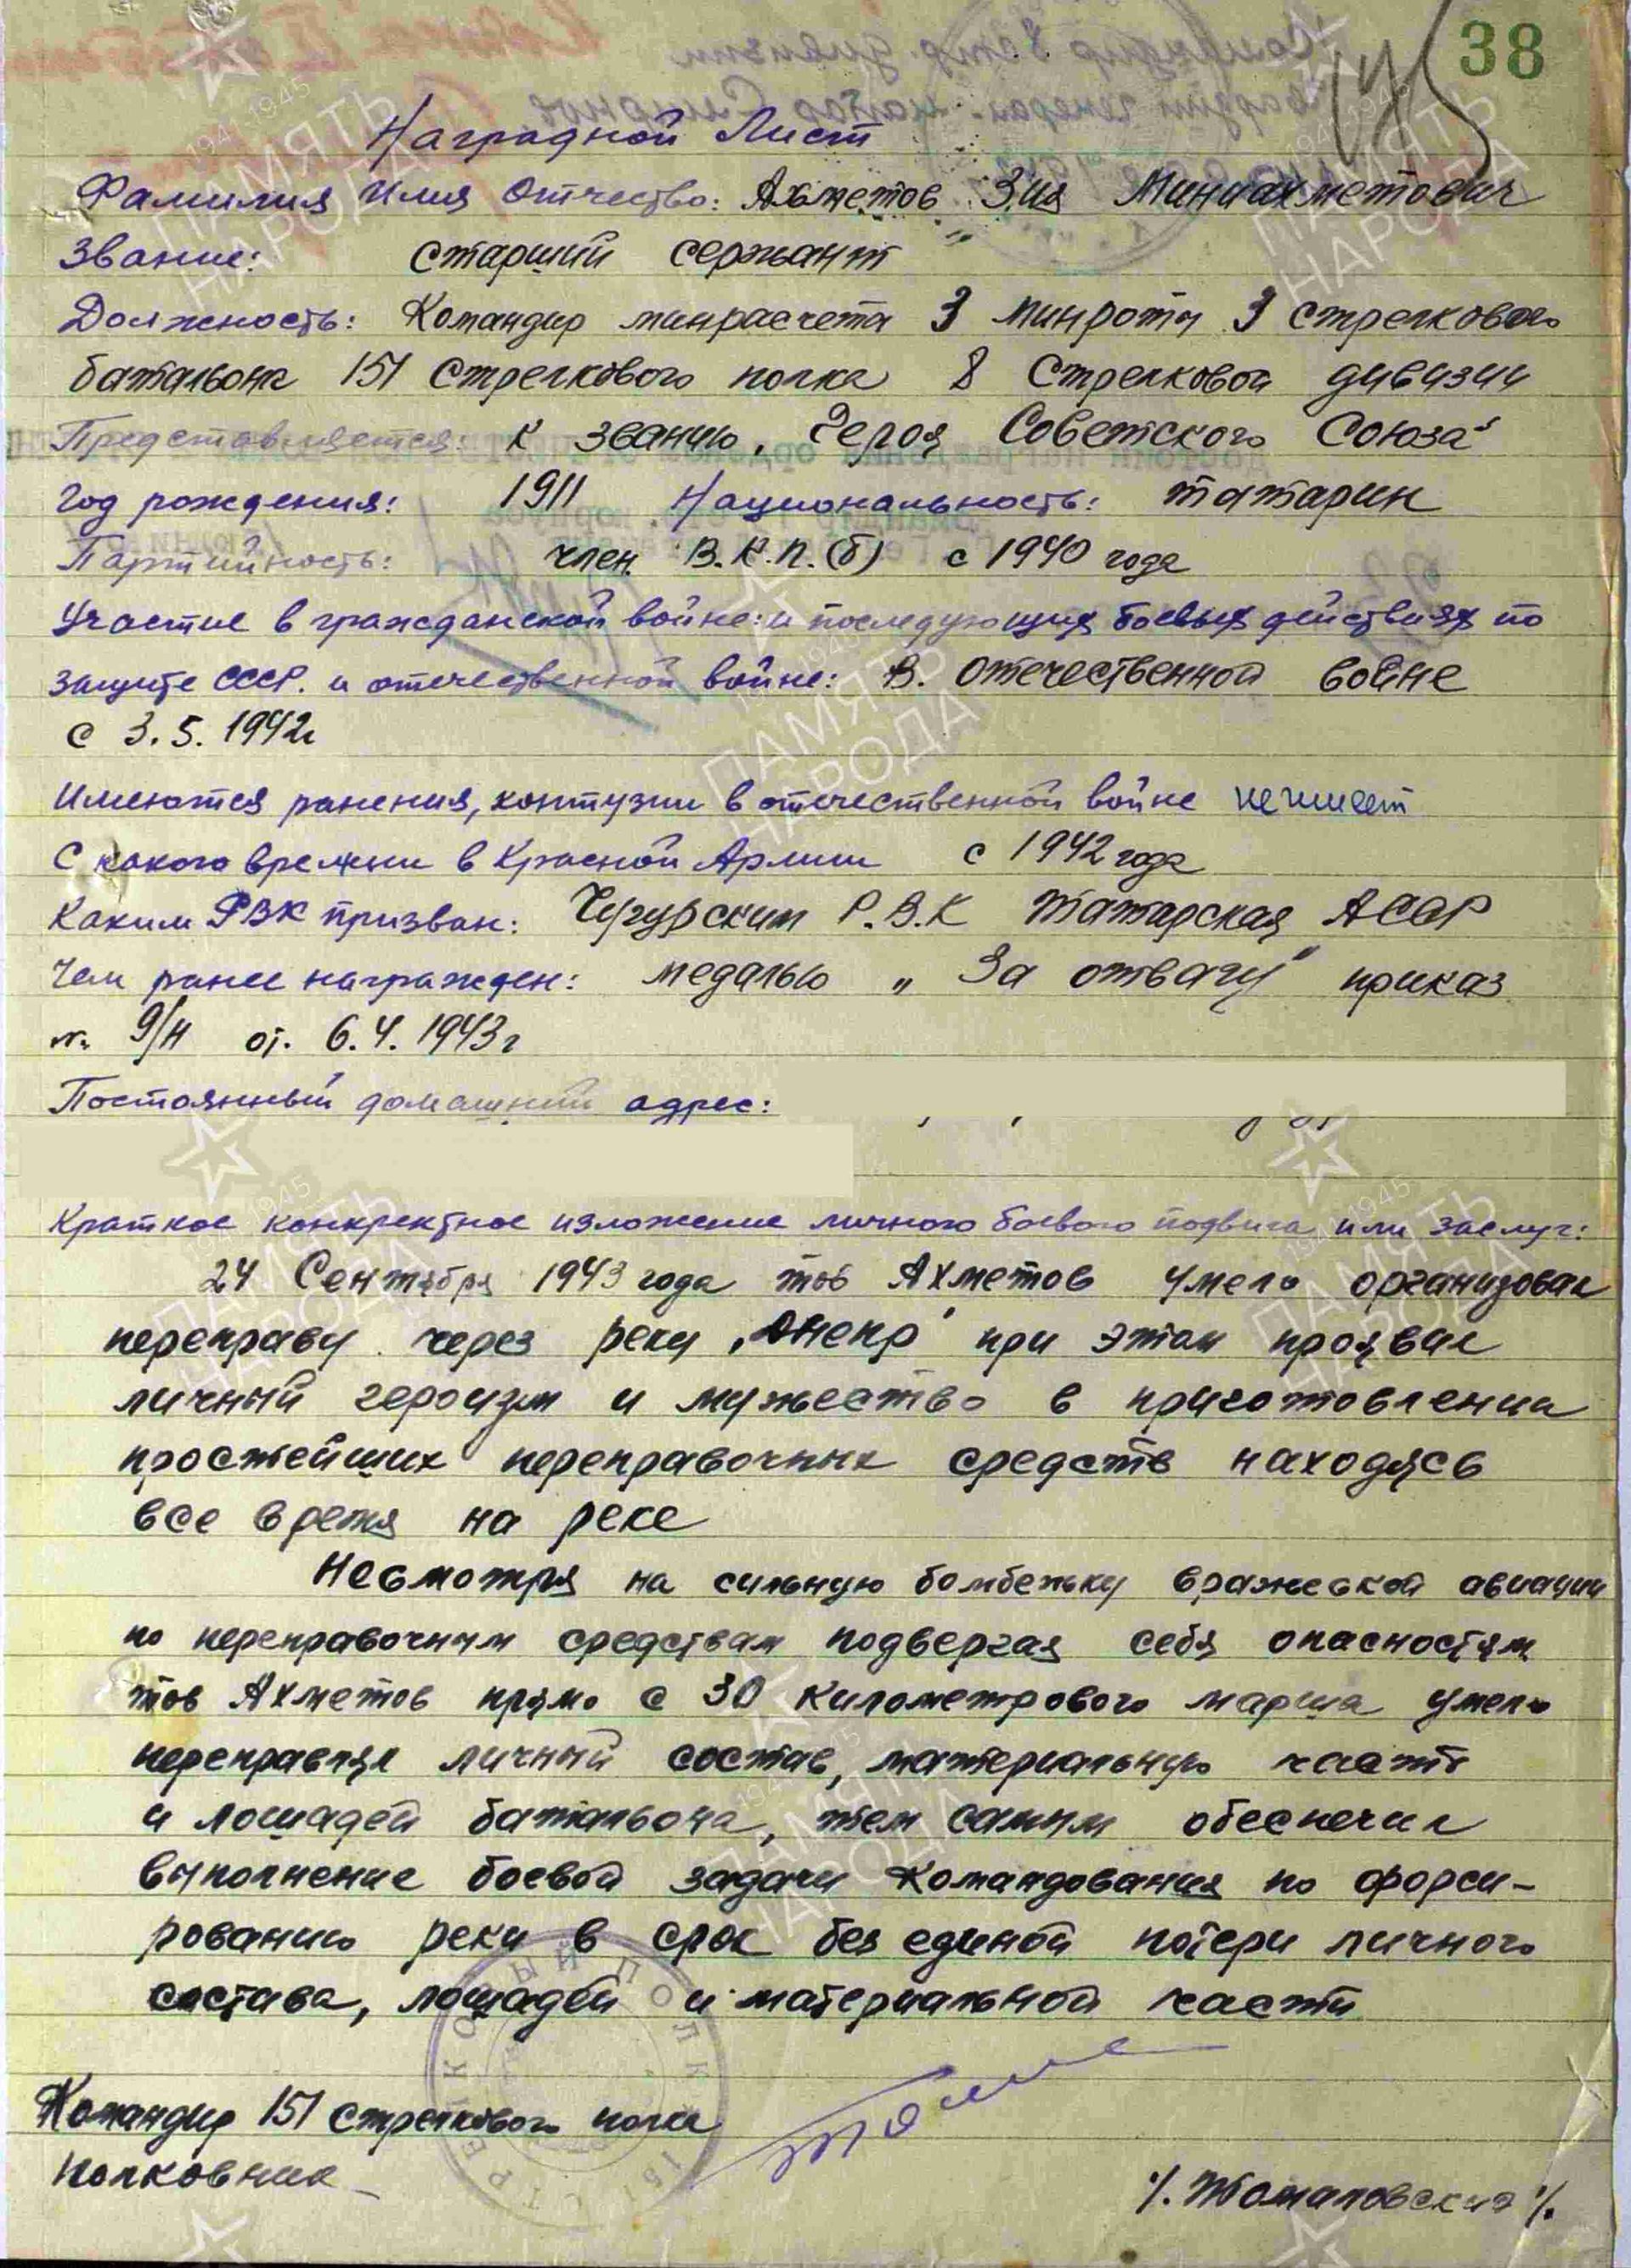 38
Наградной Лист
Фамилия Имя Отчество: Ахметов Зия Миниахметович
Звание: старший сержант
Должность: Командир минрасчета 3 минроты 3 стрелкового
батальона 151 стрелкового полка 8 стрелковой дивизии
Представляется: к званию „Героя Советского Союза"
Год рождения: 1911 Национальность: татарин
Партийность: член В.К.П.(б) с 1940 года
Участие в гражданской войне: и последующих боевых действиях по
защите СССР. и отечественной войне: В. отечественной войне
с 3.5.1942г
Имеются ранения, контузии в отечественной войне не имеет
С какого времени в Красной Армии с 1942 года
Каким РВК призван: Р.В.К Татарская АССР
Чем ранее награжден: медалью „За отвагу" приказ
№ 9/н от. 6.4.1943г
Постоянный домашний адрес:
Краткое конкретное изложение личного боевого подвига или заслуг:
24 Сентября 1943 года тов Ахметов умело организовал
переправу через реку „Днепр" при этом проявил
личный героизм и мужество в приготовлении
простейших переправочных средств находясь
все время на реке
Несмотря на сильную бомбежку вражеской авиации
по переправочным средствам подвергая себя опасностям
тов Ахметов прямо с 30 километрового марша умело
переправлял личный состав, материальную часть
и лошадей батальона, тем самым обеспечил
выполнение боевой задачи Командования по форси-
рованию реки в срок без единой потери личного
состава, лошадей и материальной части
Командир 151 стрелкового полка
полковник
/. Томаловский /.
151 СТРЕЛКОВЫЙ ПОЛК
ПАМЯТЬ НАРОДА
1941-1945